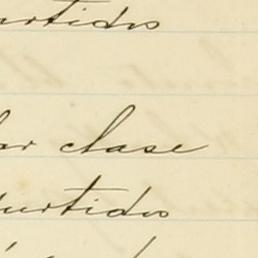 artidos
ar clase
artidos